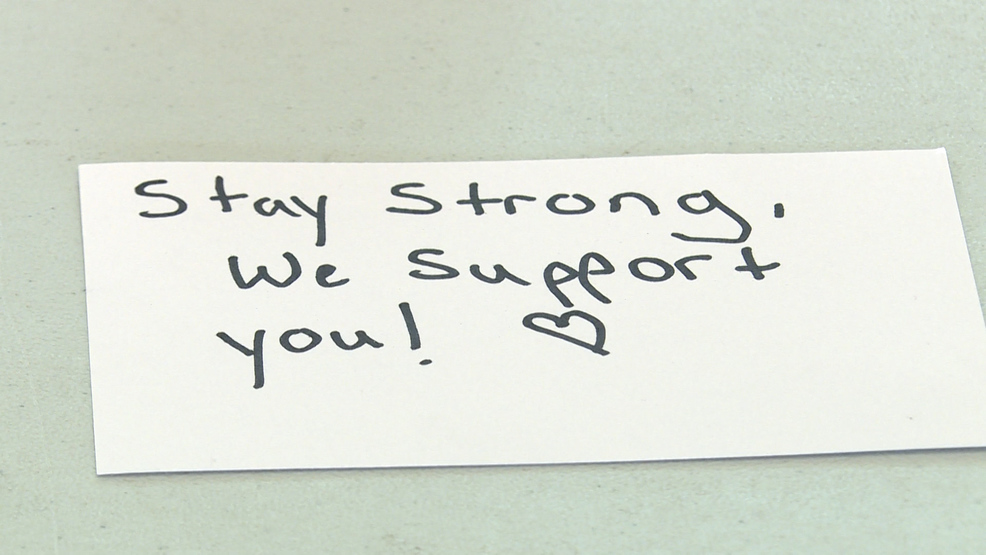 Stay Strong.
We Support
you! ♡